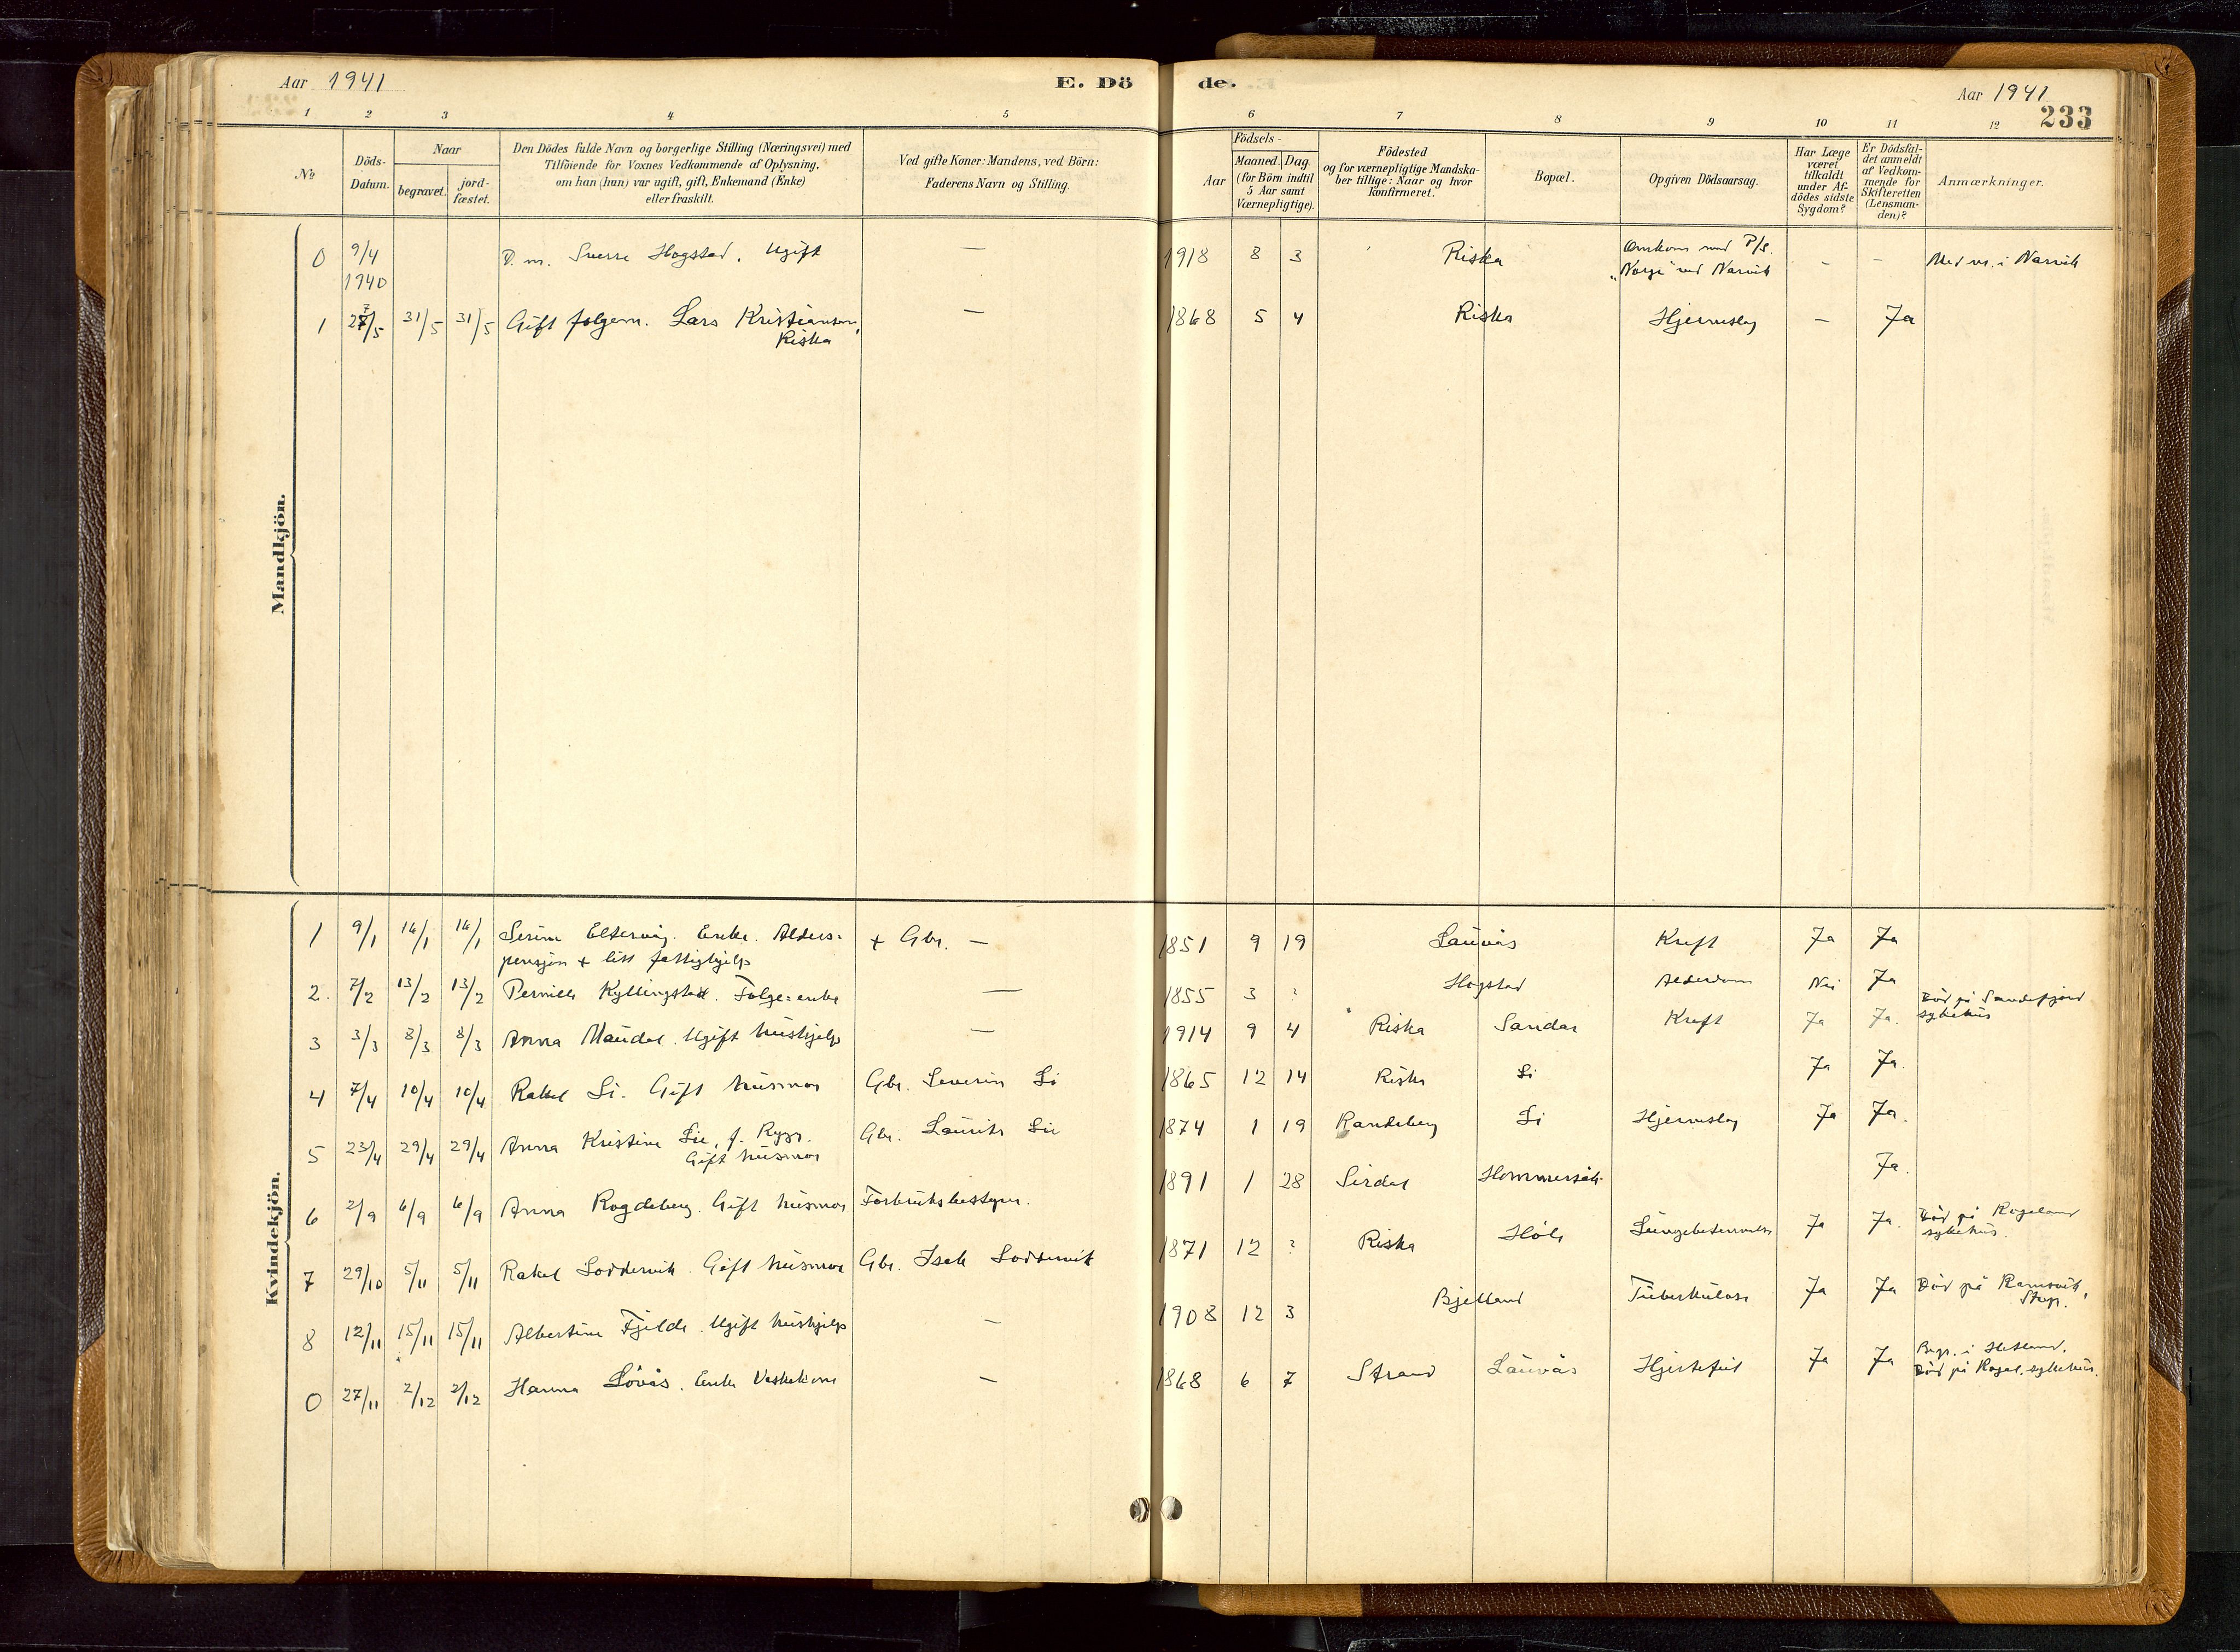 Aar 1941
E. Dö
de.
Aar 1941
233
1 2 3 4 5 6 7 8 9 10 11 12
№
Döds-Datum.
Naar
begravet.
jord-fæstet.
Den Dödes fulde Navn og borgerlige Stilling (Næringsvei) med
Tilföiende for Voxnes Vedkommende af Oplysning,
om han (hun) var ugift, gift, Enkemand (Enke)
eller fraskilt.
Ved gifte Koner: Mandens, ved Börn:
Faderens Navn og Stilling.
Födsels-
Aar
Maaned. Dag.
(for Börn indtil
5 Aar samt
Værnepligtige).
Födested
og for værnepligtige Mandska-
ber tillige: Naar og hvor
Konfirmeret.
Bopæl.
Opgiven Dödsaarsag.
Har Læge
været
tilkaldt
under Af-
dödes sidste
Sygdom?
Er Dödsfal-
det anmeldt
af Vedkom-
mende for
Skifteretten
(Lensman-
den)?
Anmærkninger.
Mandkjön.
0 9/4 1940 D.m. Sverre Hogstad. Ugift — 1918 8 3 Riska Omkom med P/s. "Norge" ved Narvik - - Med m. i Narvik
1 27/5 31/5 31/5 Gift følgem. Lars Kristiansen, Riska — 1868 5 4 Riska Hjerneslag - Ja
Kvindekjön.
1 9/1 14/1 14/1 Serine Eltervåg. Enke. Alders-
pensjon + litt fattighjelp + Gbr. — 1851 9 19 Lauvås Kreft Ja Ja
2. 7/2 13/2 13/2 Pernille Kyllingstad. Følge-enke — 1855 3 ? Hogstad Alderdom Nei Ja
3 3/3 8/3 8/3 Anna Maudal. Ugift hushjelp — 1914 9 4 Riska Sandar Kreft Ja Ja. Död på Sandefjord sykehus
4 7/4 10/4 10/4 Rakel Li. Gift husmor Gbr. Severin Li 1865 12 14 Riska Li Ja Ja.
5 23/4 29/4 29/4 Anna Kristine Lie, f. Rygg.
Gift husmor Gbr. Laurits Lie 1874 1 19 Randeberg Li Hjerneslag Ja Ja.
6 2/9 6/9 6/9 Anna Rogdeberg. Gift husmor Forbruksbestyrer. 1891 1 28 Sirdal Hommersåk. Ja.
7 29/10 5/11 5/11 Rakel Loddervik Gift husmor Gbr. Isak Loddervik 1871 12 ? Riska Høle Lungebetennelse Ja Ja. Död på Rogaland sykehus.
8 12/11 15/11 15/11 Albertine Fjelde. Ugift hushjelp — 1908 12 3 Bjelland Tuberkulose Ja Ja Död på Ramsvik,
0 27/11 2/12 2/12 Hanna Løvås. Enke Vaskekone — 1868 6 7 Strand Lauvås Hjertefeil Ja Ja Begr. i Hetland.
Död på Rogal. sykehus.